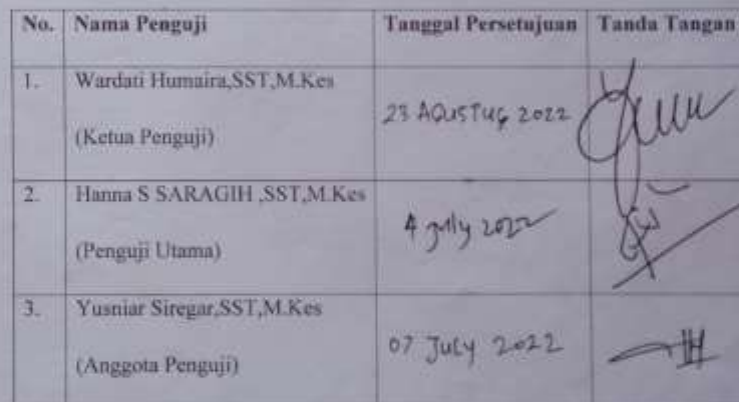 No. Nama Penguji Tanggal Persetujuan Tanda Tangan
1. Wardati Humaira,SST,M.Kes
(Ketua Penguji)
23 AGUSTUS 2022
2. Hanna S SARAGIH ,SST,M.Kes
(Penguji Utama)
4 july 2022
3. Yusniar Siregar,SST,M.Kes
(Anggota Penguji)
07 July 2022